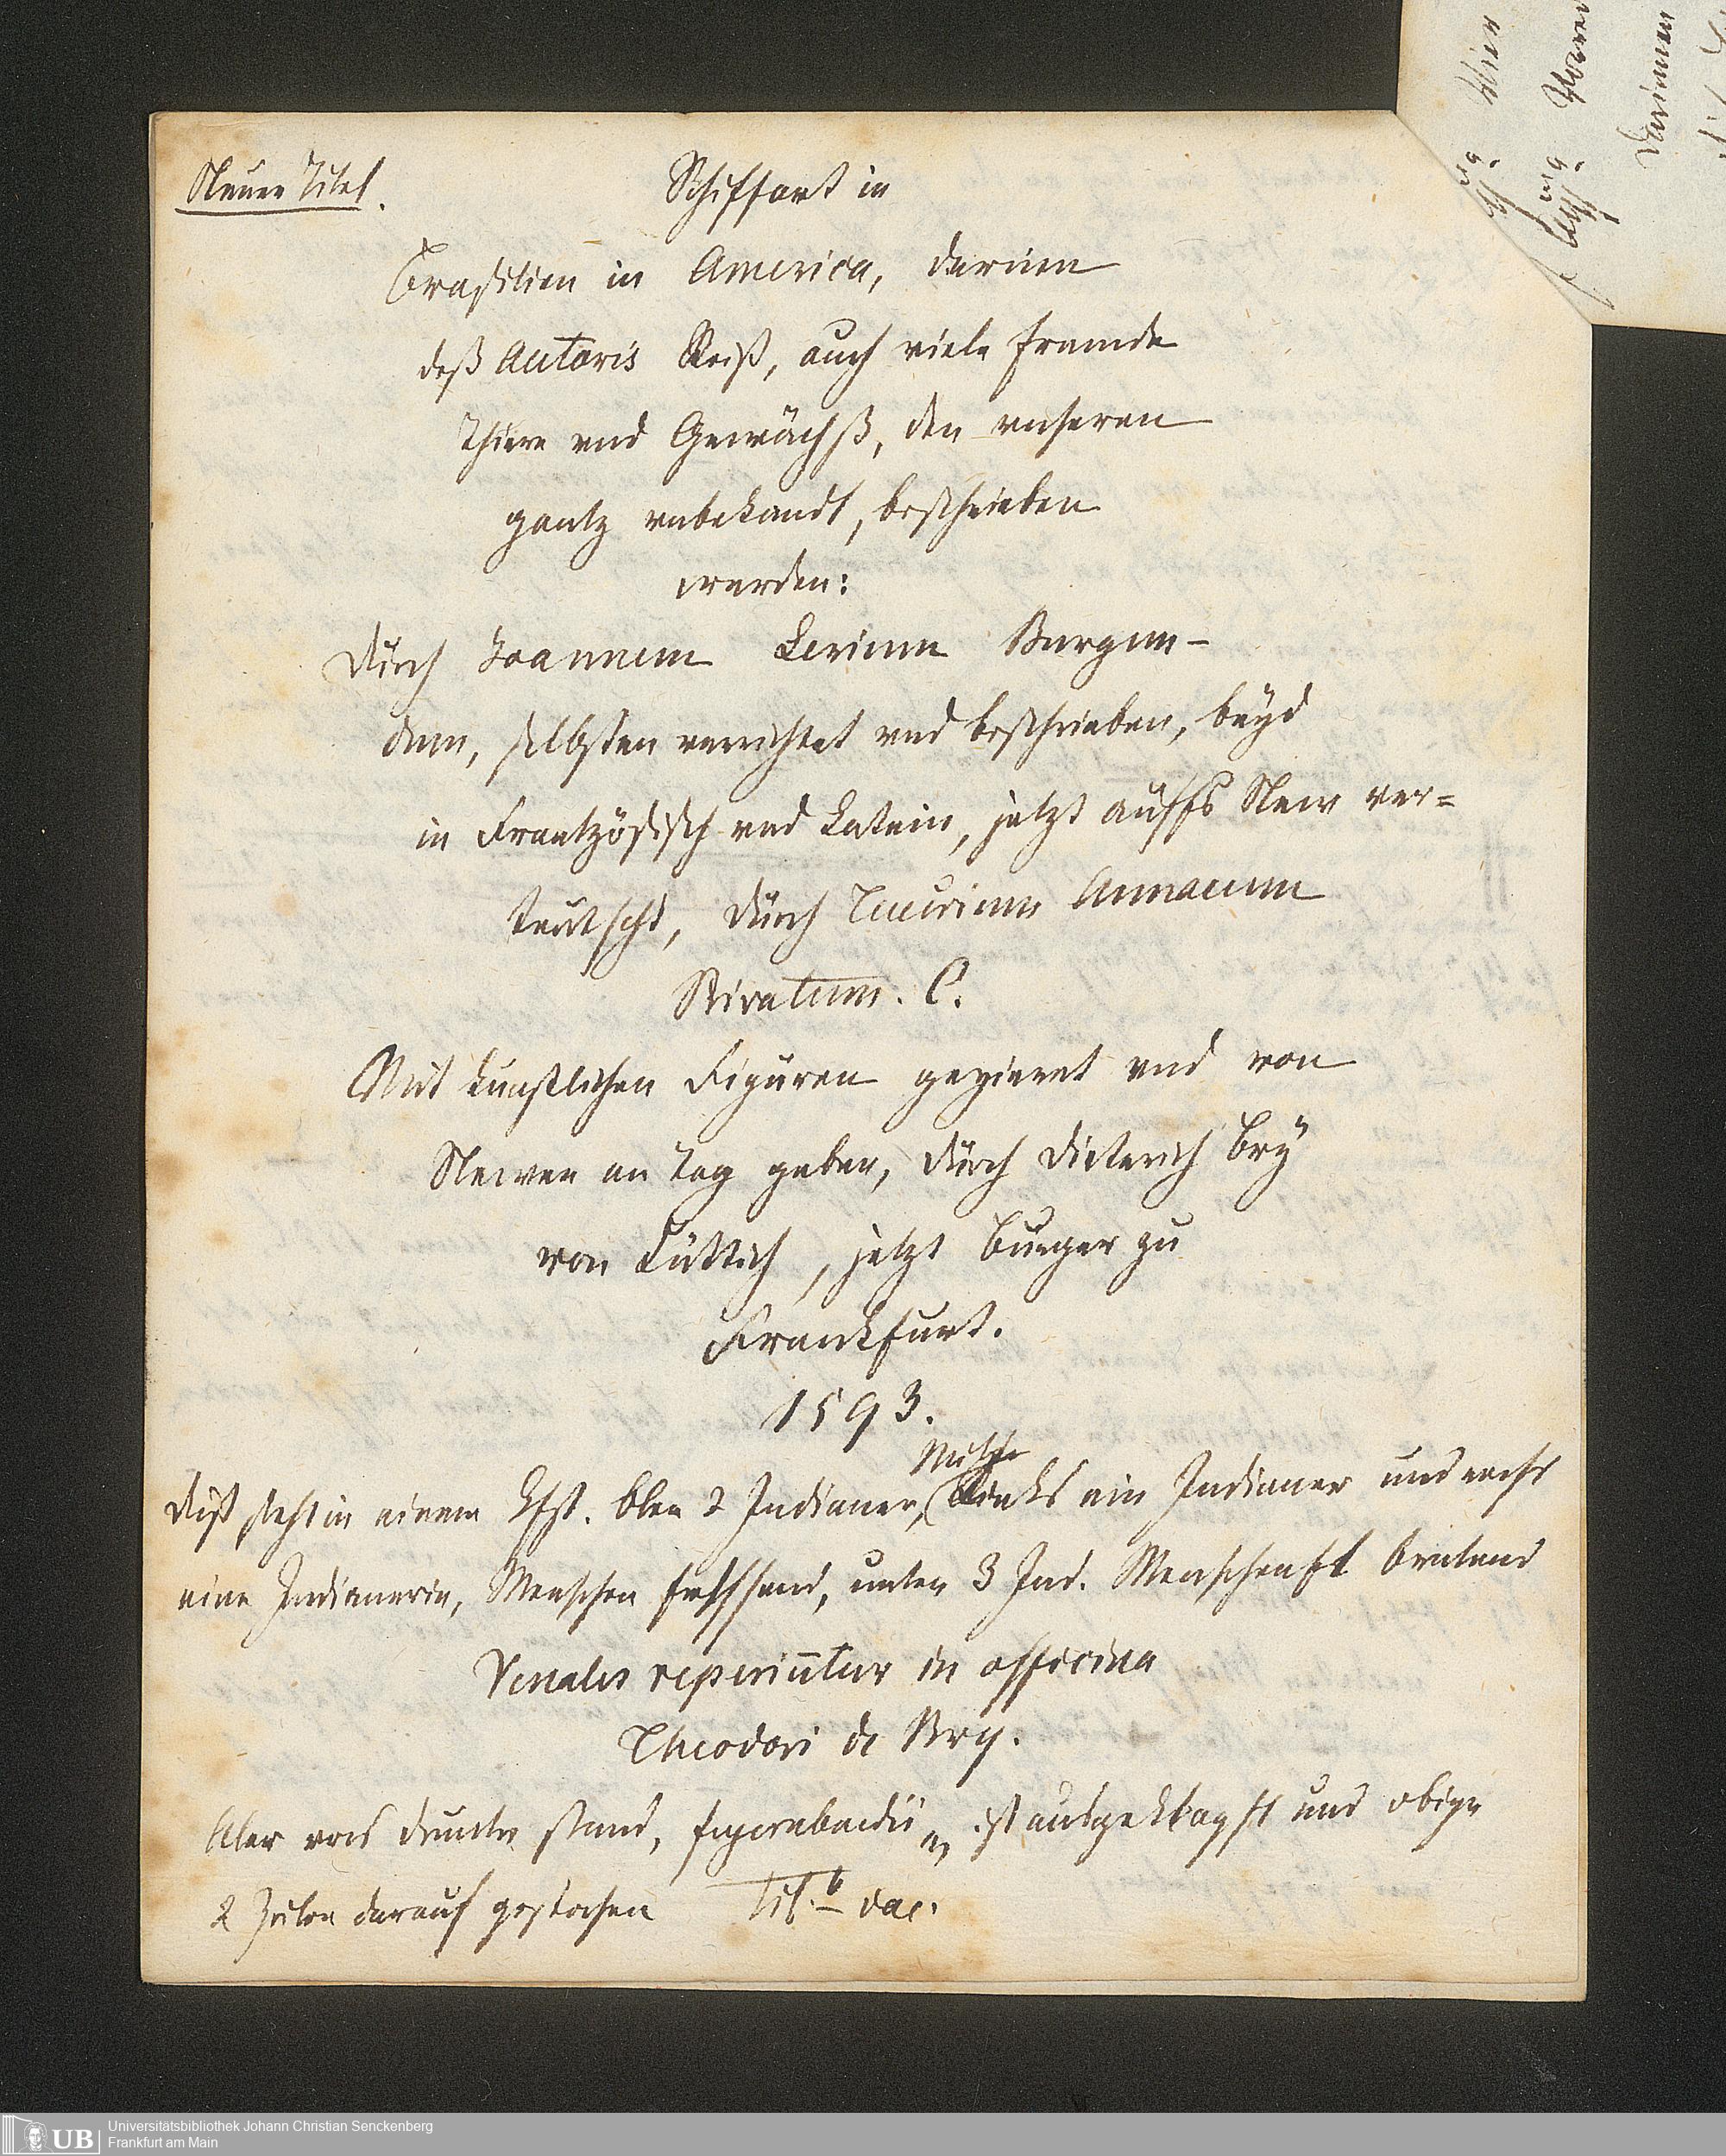 Neuer Titel.
Schiffart in
Brasilien in America, darinn
deß Autoris Reiß, auch viele frembde
Thiere vnd Gewächß, den vnseren
gantz vnbekandt, beschrieben
werden:
durch Joannem Lerium Burgun-
dum, selbsten verrichtet vnd beschrieben, beyd
in Frantzösisch vnd Latein, jetzt auffs New ver=
teutscht, durch Teucrium Annaeum
Privatum. C.
Mit kunstlichen Figuren gezieret vnd von
Newen an Tag geben, durch Dieterich Bry
von Lüttich, jetzt Burger zu
Franckfurt.
1593.
Mütze
Diß steht in einem Kfst. oben 2 Indianer, links ein Indianer und rechts
eine Indianerin, Menschen fressend, unten 3 Ind. Menschenfl bratend
Venales reperiuntur in officina
Theodori de Bry.
Aber was drunter stand, ist ausgeklopft und obige
2 Zeilen darauf gestochen Tit. b vac.
darinnen
Universitätsbibliothek Johann Christian Senckenberg
Frankfurt am Main
UB